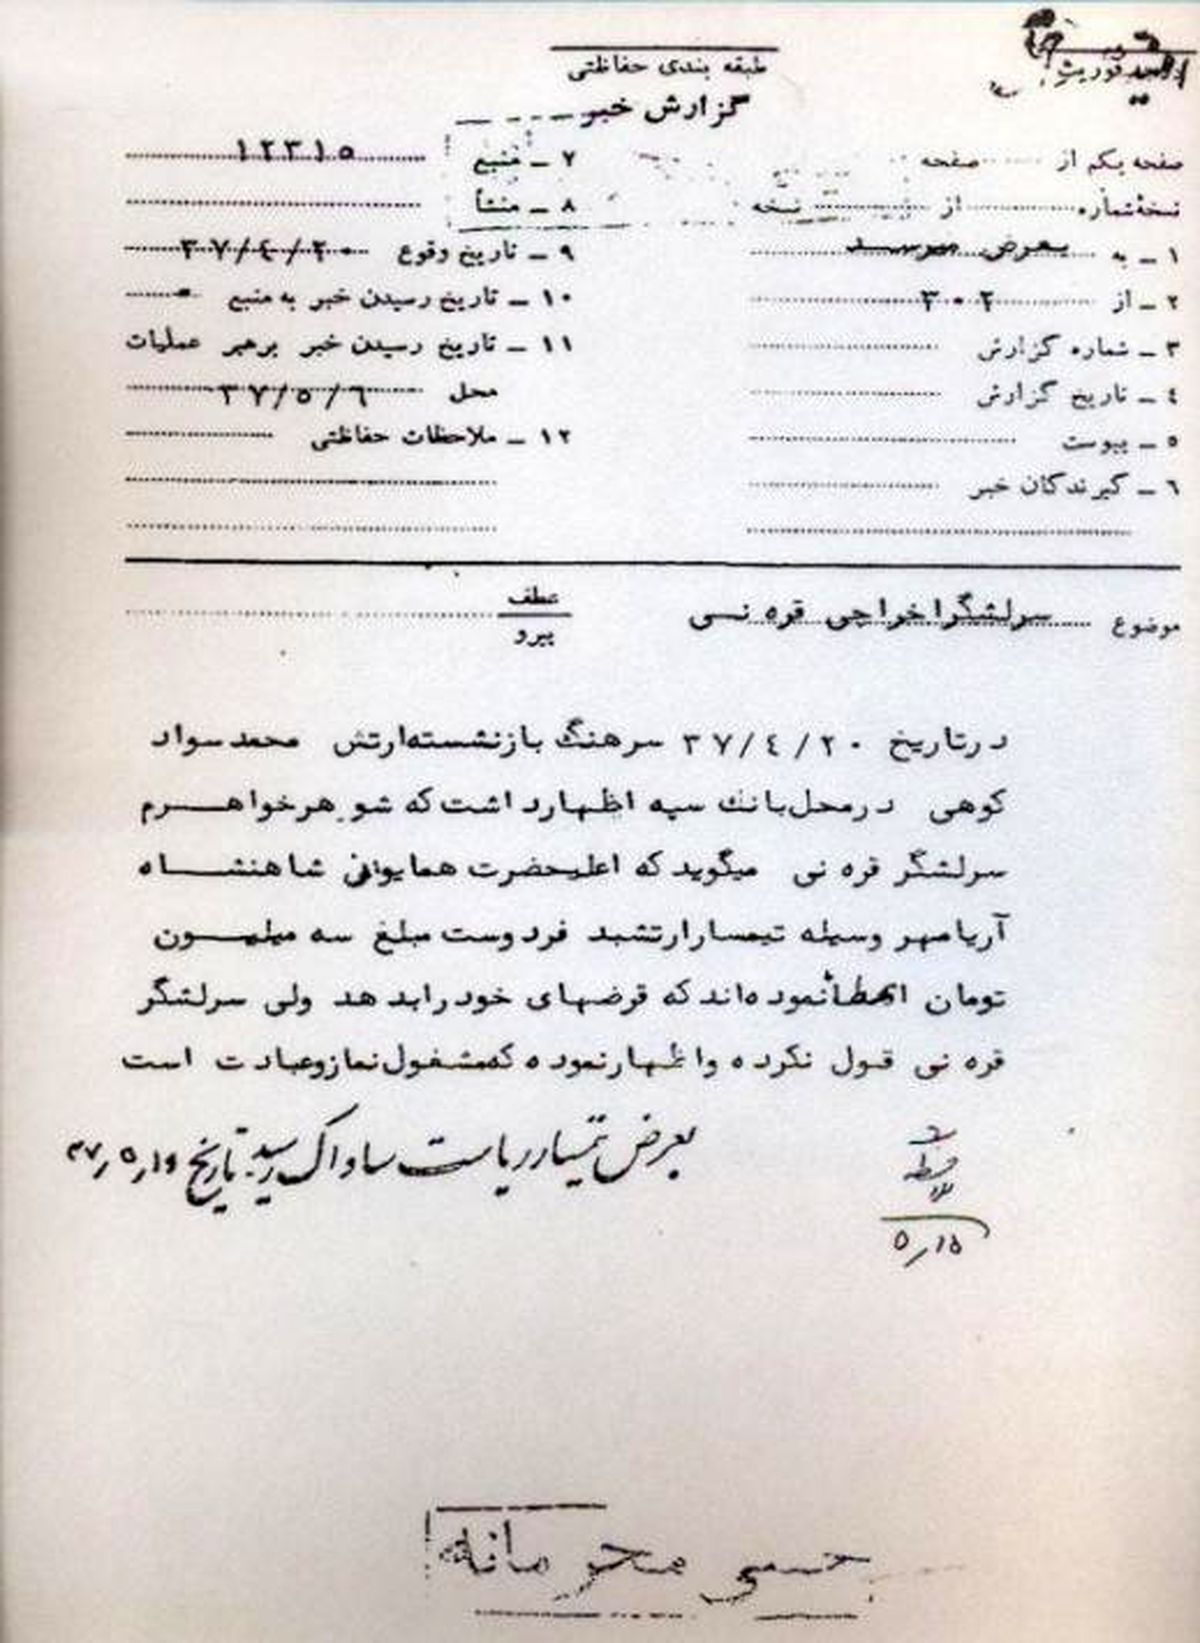 طبقه بندی حفاظتی
گزارش خبر
صفحه یکم از صفحه
نسخه شماره از نسخه
۱ ـ به بعرض میرسد
۲ ـ از ۳۰۲
۳ ـ شماره گزارش
٤ ـ تاریخ گزارش
٥ ـ پیوست
٦ ـ گیرندگان خبر
۷ ـ منبع ۱۲۳۱٥
۸ ـ منشأ
۹ ـ تاریخ وقوع ۳۷/٤/۲۰
۱۰ ـ تاریخ رسیدن خبر به منبع
۱۱ ـ تاریخ رسیدن خبر برهبر عملیات
محل ۳۷/٥/٦
۱۲ ـ ملاحظات حفاظتی
موضوع سرلشگر اخراجی قره نی
عطف
پیرو
در تاریخ ۳۷/٤/۲۰ سرهنگ بازنشسته ارتش محمد سواد
کوهی در محل بانک سپه اظهار داشت که شوهر خواهرم
سرلشگر قره نی میگوید که اعلیحضرت همایونی شاهنشاه
آریامهر وسیله تیمسار ارتشبد فردوست مبلغ سه میلیون
تومان اعطا نموده‌اند که قرضهای خود را بدهد ولی سرلشگر
قره نی قبول نکرده و اظهار نموده که مشغول نماز و عبادت است
بعرض تیمسار ریاست ساواک رسید. تاریخ ۳۷٫٥٫۱٥
٥٫۱٥
خیلی محرمانه